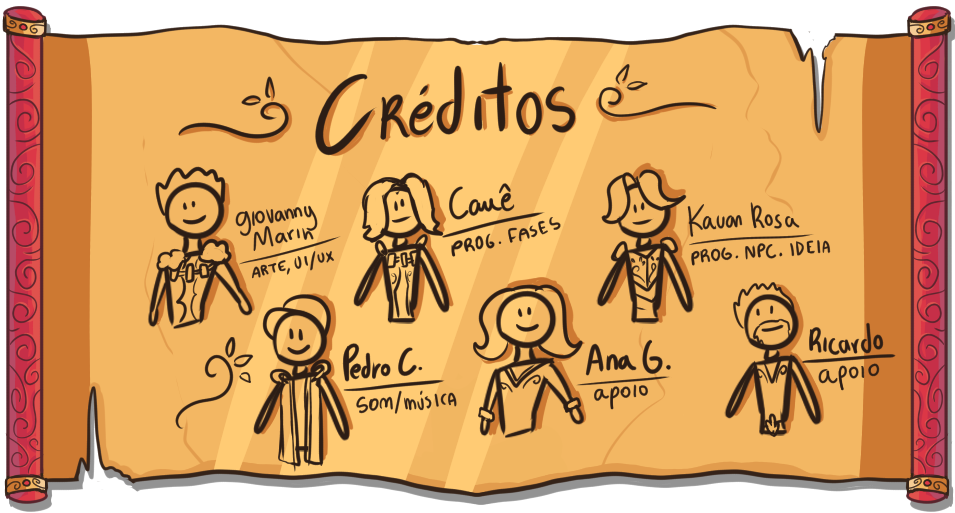 Créditos
Giovanny
Marin
ARTE, UI/UX
Cauê
PROG. FASES
Kauan Rosa
PROG. NPC. IDEIA
Pedro C.
SOM/MÚSICA
Ana G.
apoio
Ricardo
apoio